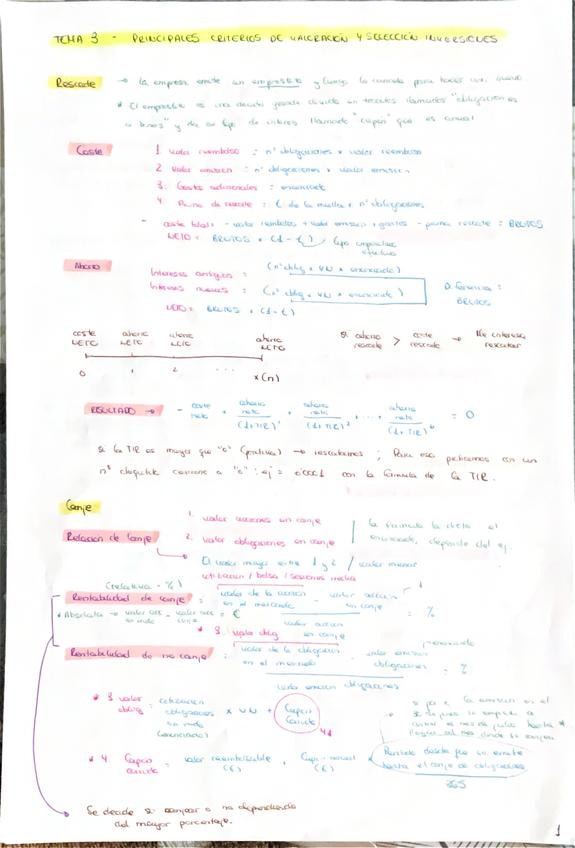 TEMA 3 - PRINCIPALES CRITERIOS DE VALORACIÓN Y SELECCIÓN INVERSIONES
Rescate → la empresa emite un empréstito y luego lo cancela para hacer uno nuevo
* El empréstito es una deuda grande dividida en trocitos llamados "obligaciones
o bonos" y da un tipo de interés llamado "cupón" que es anual
Coste 1. valor reembolso : nº obligaciones x valor reembolso
2. valor emisión : nº obligaciones x valor emisión
3. Gastos adicionales : enunciado
4. Prima de rescate : € de la multa x nº obligaciones
- coste total : - valor reembolso + valor emisión + gastos - prima rescate = BRUTOS
NETO = BRUTOS x (1 - t) tipo impositivo
Ahorro Intereses antiguos = (nº oblig x VN x enunciado)
Intereses nuevos = (nº oblig x VN x enunciado) Diferencia = BRUTOS
NETO = BRUTOS x (1-t)
coste NETO ahorro NETO ahorro NETO ahorro NETO
0 1 2 .... x(n)
Si ahorro rescate > coste rescate → Me interesa rescatar
RESULTADO → - coste neto + ahorro neto / (1+TIR)¹ + ahorro neto / (1+TIR)² + ... + ahorro neto / (1+TIR)ⁿ = 0
Si la TIR es mayor que "0" (positiva) → rescatamos ; Para eso probamos con un
nº cercano a "0" : ej = 0'0001 con la fórmula de la TIR.
Canje
Relación de Canje 1. valor acciones en canje
2. valor obligaciones en canje
la fórmula la dicta el enunciado, depende del ej.
El valor mayor entre 1 y 2 / valor menor
(relativa - %)
Rentabilidad de canje = valor de la acción en el mercado - valor acción en canje / valor acción en canje = %
* Absoluta → valor acc en mdo - valor acc canje = €
* 3. valor oblig
Rentabilidad de no canje = valor de la obligación en el mercado - valor emisión obligaciones / valor emisión obligaciones = %
enunciado
* 3 valor oblig = cotización obligaciones en mdo (enunciado) x VN + Cupón corrido
4
* 4. Cupón corrido = valor reembolsable (€) x Cupón anual (%) x Periodo desde que se emite hasta el canje de obligaciones / 365
Se decide si canjear o no dependiendo
del mayor porcentaje.
1